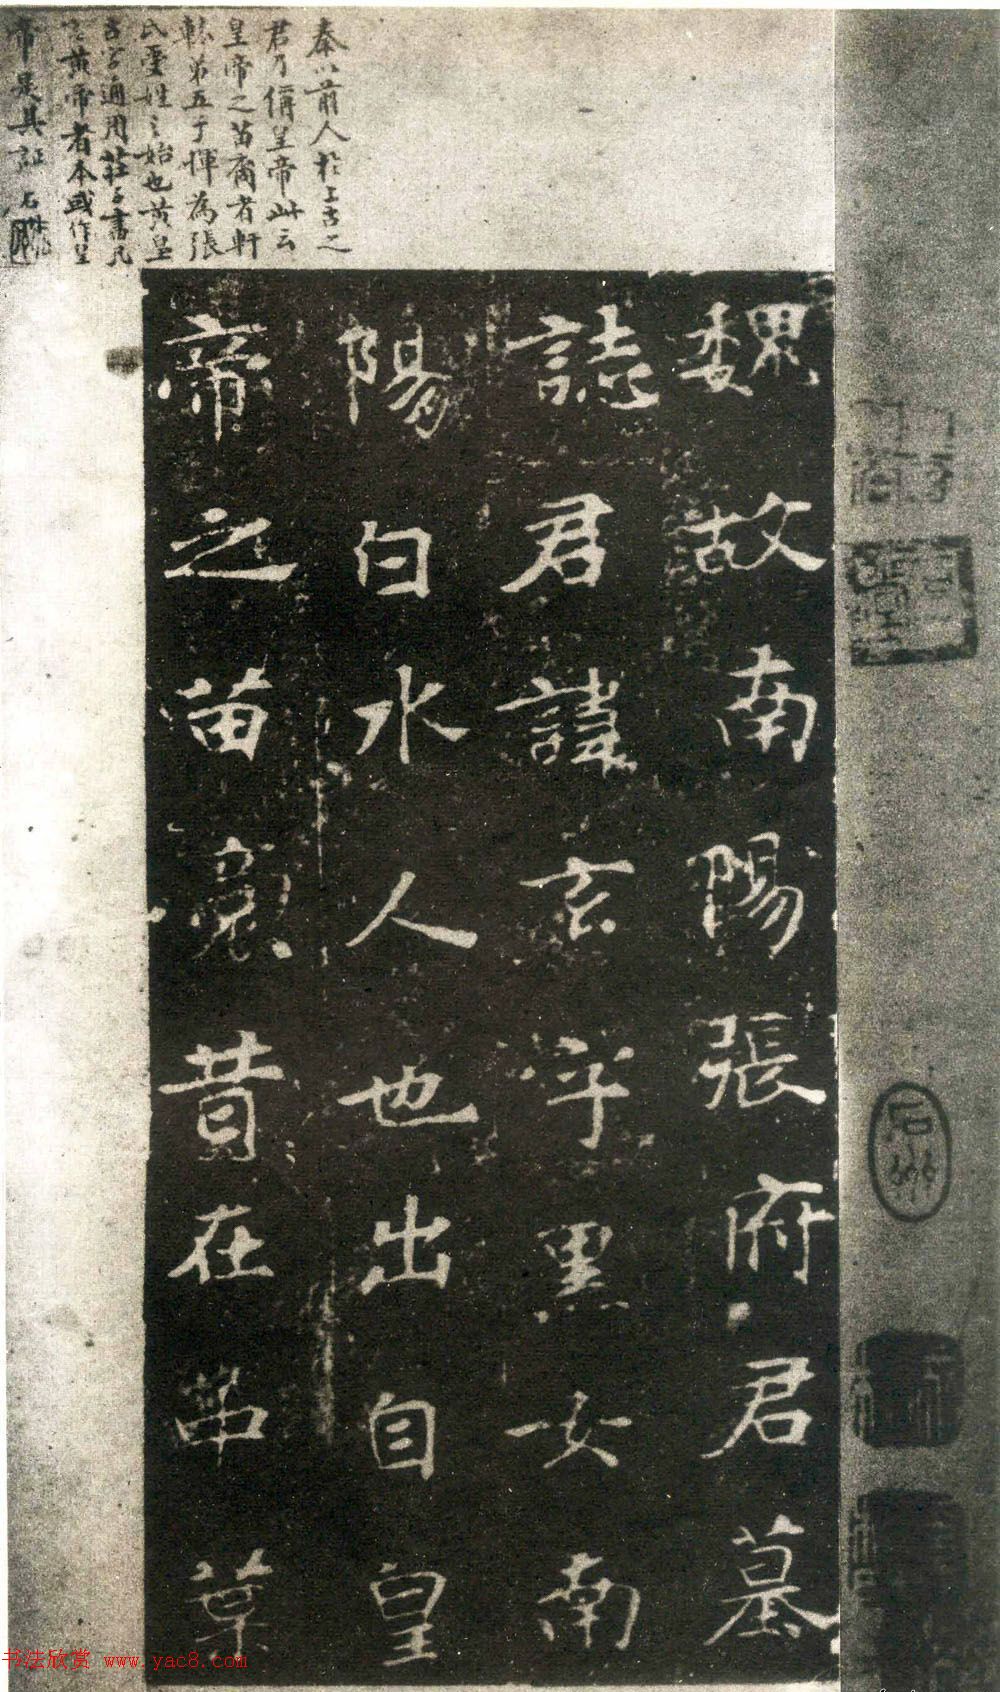 秦以前人於上古之
君乃偁皇帝此云
皇帝之苗裔者軒
轅弟五子揮為張
氏受姓之始也黃皇
古字通用莊子書凡
黃帝者本或作皇
帝是其証
魏故南陽張府君墓
誌君諱玄字黑女南
陽白水人也出自皇
帝之苗裔昔在中葉
书法欣赏 www.yac8.com